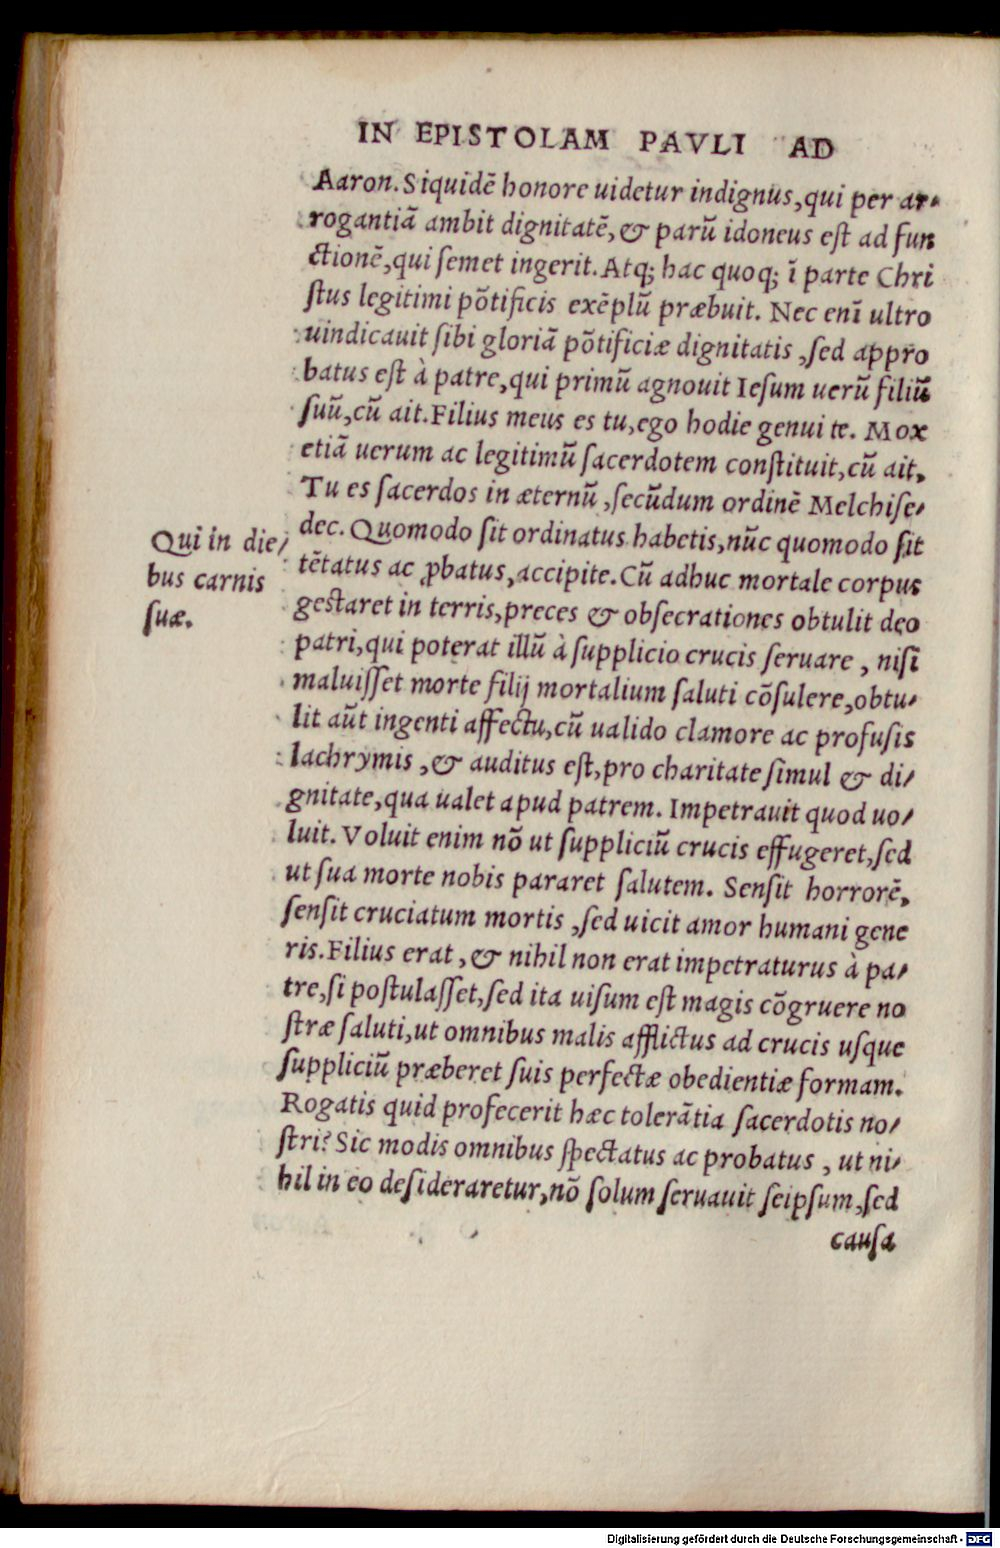 IN EPISTOLAM PAVLI AD
Aaron. Siquidē honore uidetur indignus, qui per ar-
rogantiā ambit dignitatē, & parū idoneus eſt ad fun
ctionē, qui ſemet ingerit. Atq; hac quoq; ī parte Chri
ſtus legitimi pōtificis exēplū præbuit. Nec enī ultro
uindicauit ſibi gloriā pōtificiæ dignitatis, ſed appro
batus eſt à patre, qui primū agnouit Ieſum uerū filiū
ſuū, cū ait. Filius meus es tu, ego hodie genui te. Mox
etiā uerum ac legitimū ſacerdotem conſtituit, cū ait,
Tu es ſacerdos in æternū, ſecūdum ordinē Melchiſe/
dec. Quomodo ſit ordinatus habetis, nūc quomodo ſit
Qui in die/
bus carnis
ſuæ.
tētatus ac ꝓbatus, accipite. Cū adhuc mortale corpus
geſtaret in terris, preces & obſecrationes obtulit deo
patri, qui poterat illū à ſupplicio crucis ſeruare, niſi
maluiſſet morte filij mortalium ſaluti cōſulere, obtu/
lit aūt ingenti affectu, cū ualido clamore ac profuſis
lachrymis, & auditus eſt, pro charitate ſimul & di/
gnitate, qua ualet apud patrem. Impetrauit quod uo/
luit. Voluit enim nō ut ſuppliciū crucis effugeret, ſed
ut ſua morte nobis pararet ſalutem. Senſit horrorē,
ſenſit cruciatum mortis, ſed uicit amor humani gene
ris. Filius erat, & nihil non erat impetraturus à pa/
tre, ſi poſtulaſſet, ſed ita uiſum eſt magis cōgruere no
ſtræ ſaluti, ut omnibus malis afflictus ad crucis uſque
ſuppliciū præberet ſuis perfectæ obedientiæ formam.
Rogatis quid profecerit hæc tolerātia ſacerdotis no/
ſtri? Sic modis omnibus ſpectatus ac probatus, ut ni/
hil in eo deſideraretur, nō ſolum ſeruauit ſeipſum, ſed
cauſa
Digitalisierung gefördert durch die Deutsche Forschungsgemeinschaft - DFG